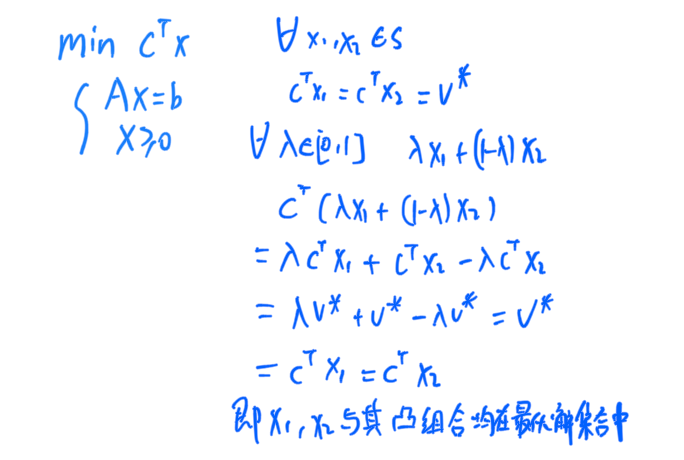 min cᵀx
{ Ax=b
x⩾0
∀ x₁,x₂ ∈S
cᵀx₁ = cᵀx₂ = v*
∀ λ∈[0,1] λx₁+(1-λ)x₂
cᵀ(λx₁+(1-λ)x₂)
= λcᵀx₁ + cᵀx₂ - λcᵀx₂
= λv* + v* - λv* = v*
= cᵀx₁ = cᵀx₂
即x₁,x₂与其凸组合均在最优解集合中